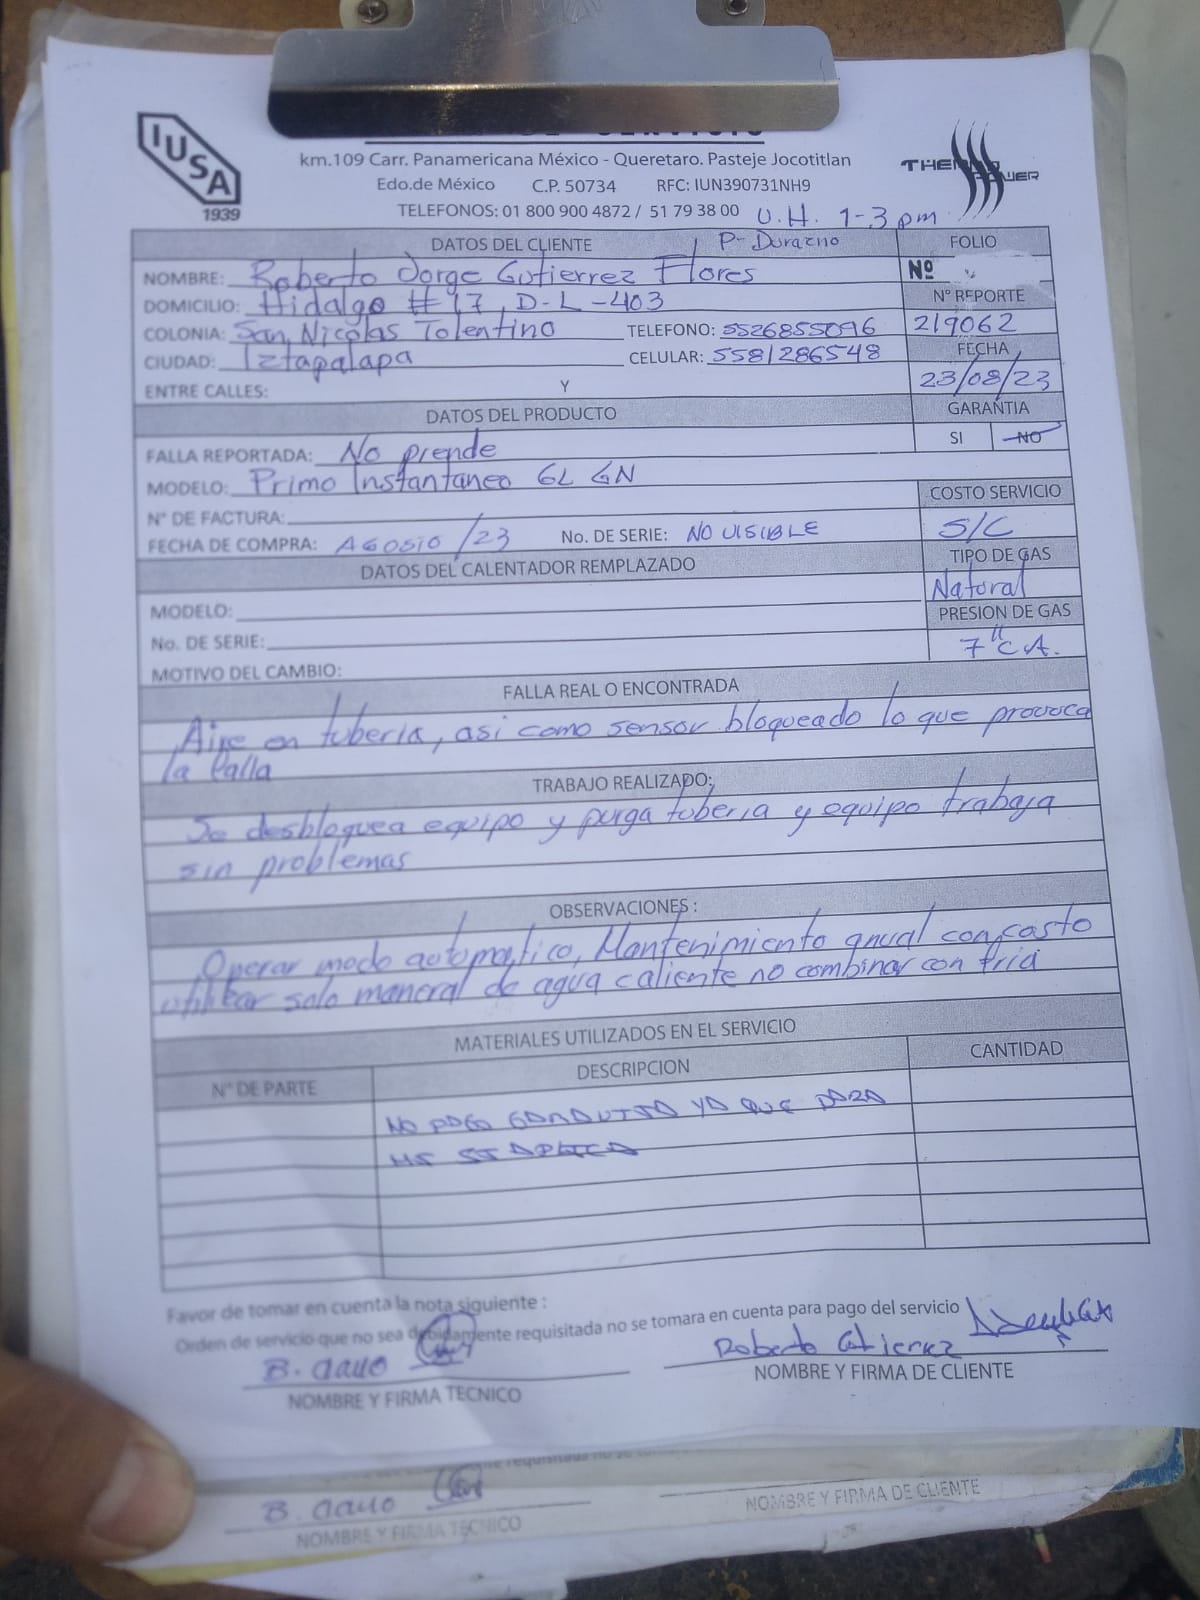 IUSA
1939
km.109 Carr. Panamericana México - Queretaro. Pasteje Jocotitlan
Edo.de México C.P. 50734 RFC: IUN390731NH9
TELEFONOS: 01 800 900 4872 / 51 79 38 00 U.H. 1-3 pm
DATOS DEL CLIENTE P- Durazno FOLIO
NOMBRE: Roberto Jorge Gutierrez Flores Nº
DOMICILIO: Hidalgo # 17, D-L-403 Nº REPORTE
COLONIA: San Nicolas Tolentino TELEFONO: 5526855096 219062
CIUDAD: Iztapalapa CELULAR: 5581286548 FECHA
ENTRE CALLES: Y 23/08/23
DATOS DEL PRODUCTO GARANTIA
FALLA REPORTADA: No prende SI NO
MODELO: Primo Instantaneo 6L GN
N° DE FACTURA: COSTO SERVICIO
FECHA DE COMPRA: AGOSTO /23 No. DE SERIE: NO VISIBLE S/C
DATOS DEL CALENTADOR REMPLAZADO TIPO DE GAS
MODELO: Natural
No. DE SERIE: PRESION DE GAS
MOTIVO DEL CAMBIO: 7" CA.
FALLA REAL O ENCONTRADA
Aire en tuberia, asi como sensor bloqueado lo que provoca
la falla
TRABAJO REALIZADO:
Se desbloquea equipo y purga tuberia y equipo trabaja
sin problemas
OBSERVACIONES :
Operar modo automatico, Mantenimiento anual con costo
utilizar solo maneral de agua caliente no combinar con fria
MATERIALES UTILIZADOS EN EL SERVICIO
N° DE PARTE DESCRIPCION CANTIDAD
NO YA QUE PARA
Favor de tomar en cuenta la nota siguiente :
Orden de servicio que no sea debidamente requisitada no se tomara en cuenta para pago del servicio
B. Roberto Gutierrez
NOMBRE Y FIRMA TECNICO NOMBRE Y FIRMA DE CLIENTE
B.
NOMBRE Y FIRMA TECNICO NOMBRE Y FIRMA DE CLIENTE